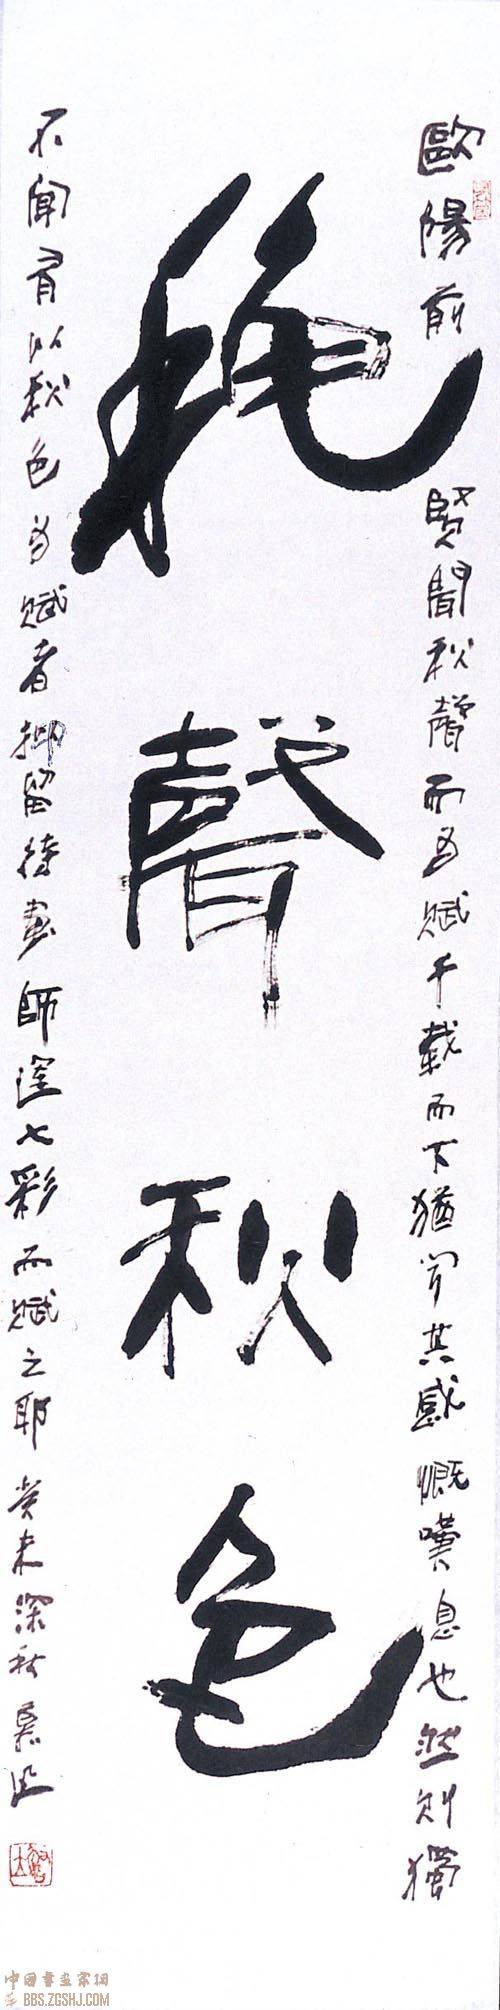 歐陽前賢聞秋聲而為賦千載而下猶聞其感慨嘆息也然則獨
穐聲秋色
不聞有以秋色為賦者抑留待畫師運七彩而賦之耶癸未深秋
中国書畫家網
BBS.ZGSHJ.COM